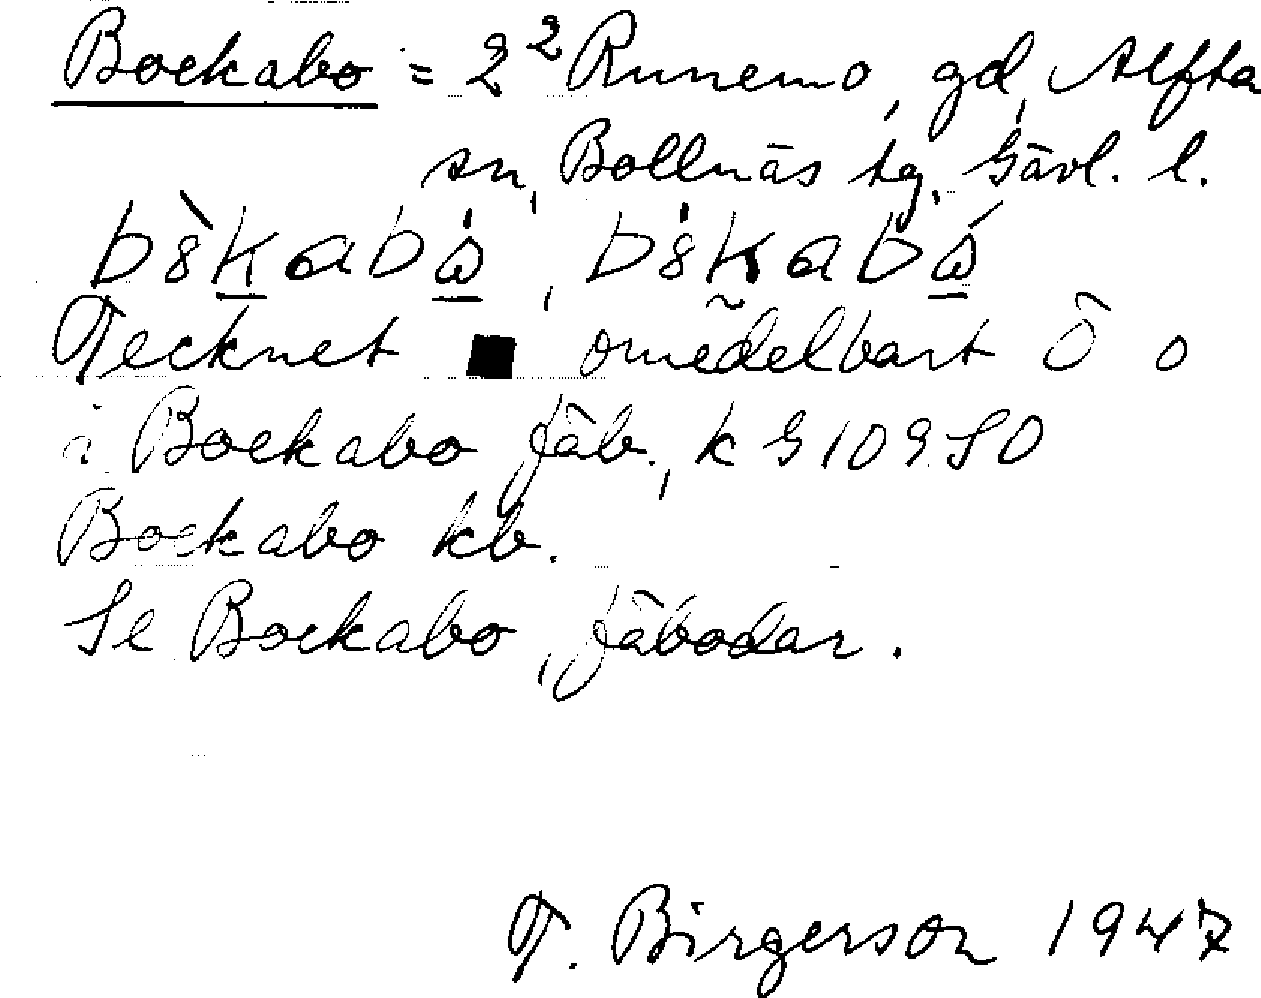 Bockabo = 2² Runemo, gd, Alfta
sn, Bollnäs tg. Gävl. l.
Tecknet ■ omedelbart ō o
i Bockabo fäb., k G 109 SO
Bockabo kb.
Se Bockabo, fäbodar.
T. Birgerson 1947